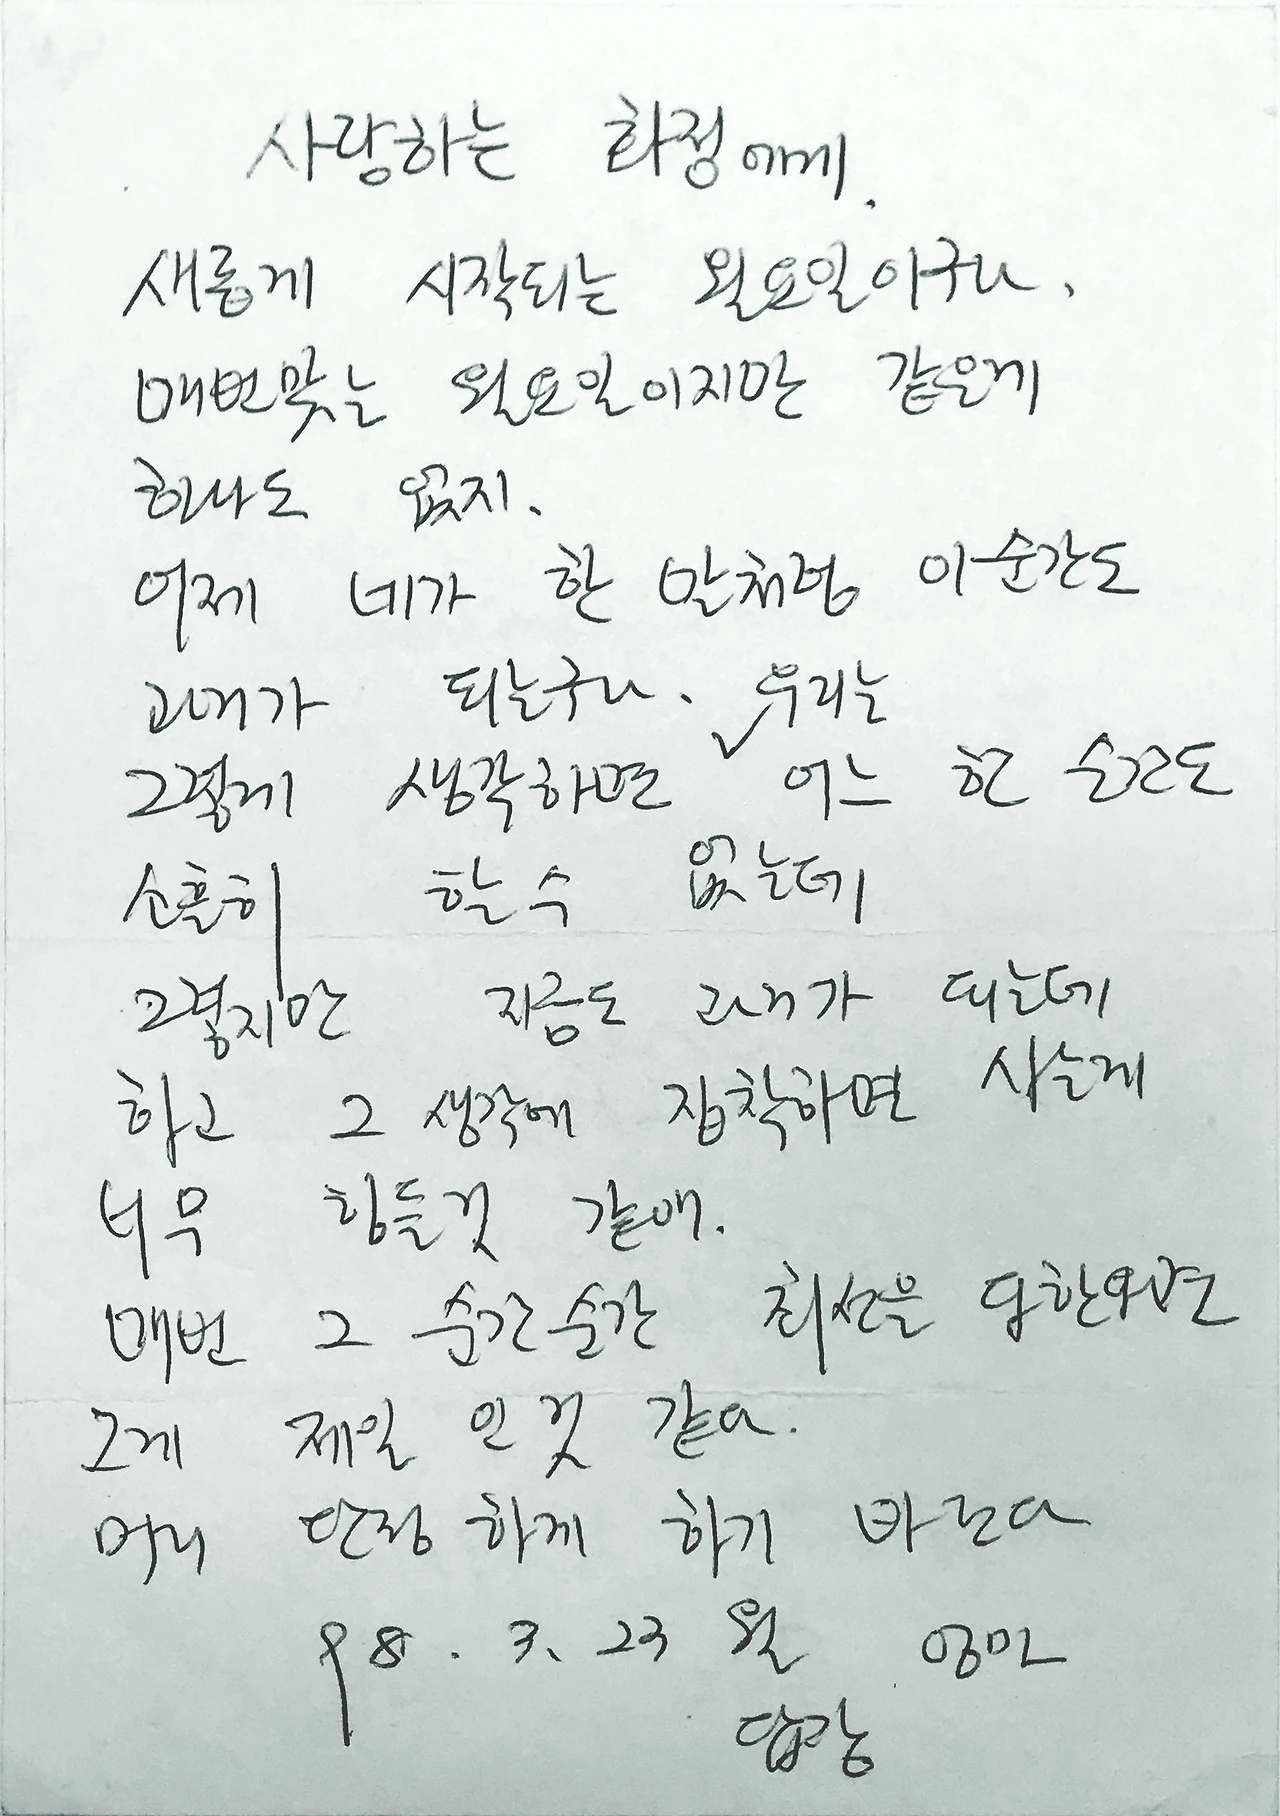 사랑하는 화정에게.
새롭게 시작되는 월요일이구나.
매번맞는 월요일이지만 같은게
하나도 없지.
어제 네가 한 말처럼 이순간도
과거가 되는구나. 우리는
그렇게 생각하면 어느 한 순간도
소홀히 할수 없는데
그렇지만 지금도 과거가 되는데
하고 그 생각에 집착하면 사는게
너무 힘들것 같애.
매번 그 순간순간 최선을 다한다면
그게 제일 인것 같다.
머리 단정하게 하기 바란다
98. 3. 23 월 엄마
답장